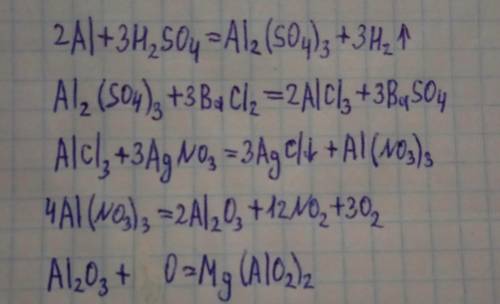 2Al+3H₂SO₄=Al₂(SO₄)₃+3H₂↑
Al₂(SO₄)₃+3BaCl₂=2AlCl₃+3BaSO₄
AlCl₃+3AgNO₃=3AgCl↓+Al(NO₃)₃
4Al(NO₃)₃=2Al₂O₃+12NO₂+3O₂
Al₂O₃+ O=Mg(AlO₂)₂